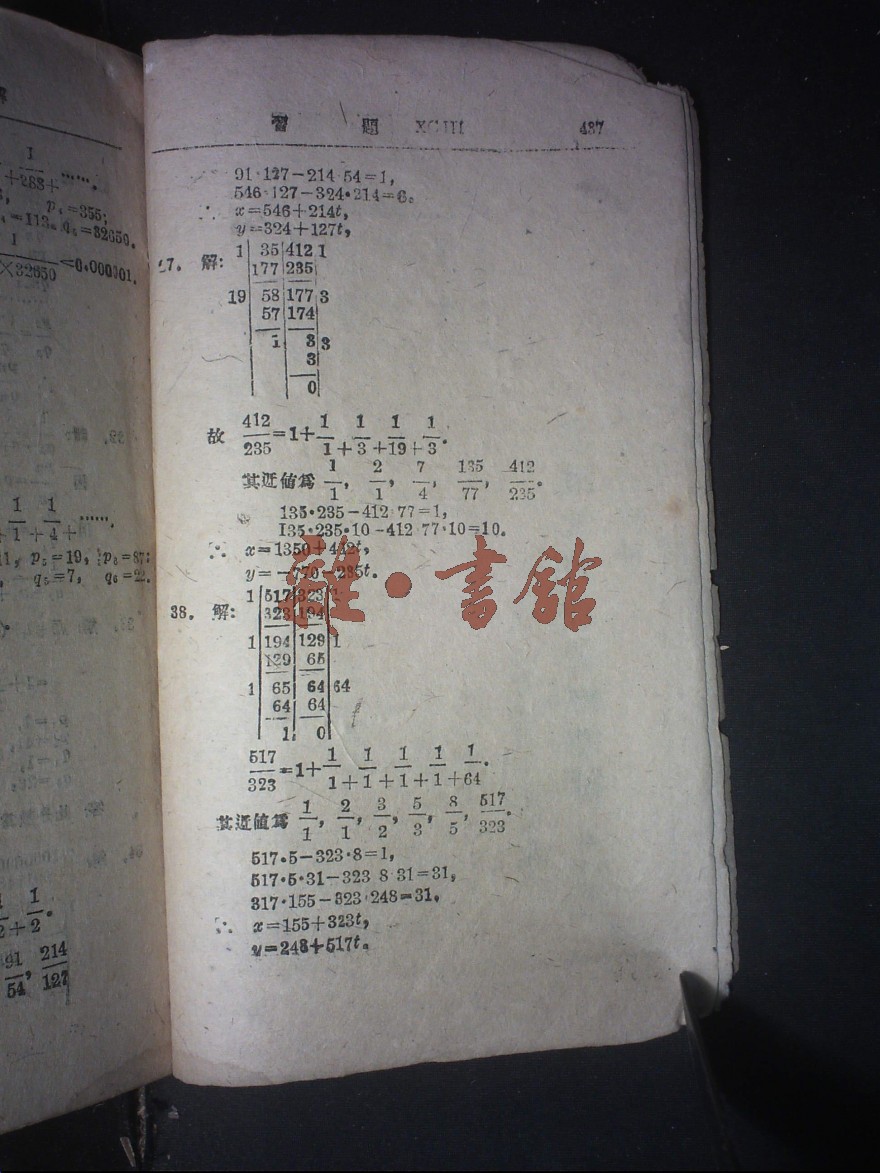 習 題 XCIII 437
91·127-214·54=1,
546·127-324·214=6。
∴ x=546+214t,
y=324+127t,
解:
1 | 35 | 412 | 1
177 | 235
19 | 58 | 177 | 3
57 | 174
1 | 3 | 3
3
0
故 412/235=1+1/1+1/3+1/19+1/3.
其近値爲 1/1, 2/1, 7/4, 135/77, 412/235.
135·235-412·77=1,
135·235·10-412·77·10=10.
∴ x=1350+412t,
y=-770-235t.
38. 解:
1 | 517 | 323 | 1
323 | 194
1 | 194 | 129 | 1
129 | 65
1 | 65 | 64 | 64
64 | 64
1 | 0
517/323=1+1/1+1/1+1/1+1/1+1/64.
其近値爲 1/1, 2/1, 3/2, 5/3, 8/5, 517/323.
517·5-323·8=1,
517·5·31-323·8·31=31,
317·155-323·248=31,
∴ x=155+323t,
y=248+517t。
雜·書舘
1/+288+……,
p₄=355;
=113。q₅=32650.
1/×32650<0.000001.
1/1+1/4+……,
11, p₅=19, p₆=87;
q₅=7, q₆=22.
1/2+1/2.
91/54, 214/127